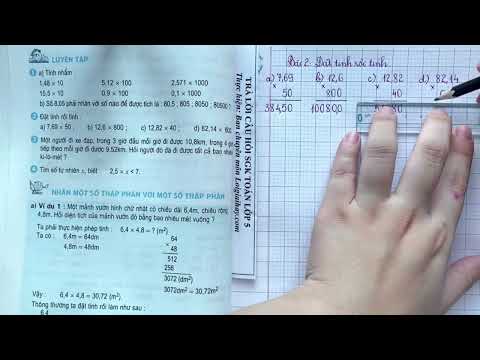 LUYỆN TẬP
1 a) Tính nhẩm
1,48 × 10 5,12 × 100 2,571 × 1000
15,5 × 10 0,9 × 100 0,1 × 1000
b) Số 8,05 phải nhân với số nào để được tích là : 80,5 ; 805 ; 8050 ; 80500
2 Đặt tính rồi tính :
a) 7,69 × 50 ; b) 12,6 × 800 ; c) 12,82 × 40 ; d) 82,14 × 60
3 Một người đi xe đạp, trong 3 giờ đầu mỗi giờ đi được 10,8km, trong 4
tiếp theo mỗi giờ đi được 9,52km. Hỏi người đó đã đi được tất cả bao nhiêu
ki-lô-mét ?
4 Tìm số tự nhiên x, biết : 2,5 × x < 7.
NHÂN MỘT SỐ THẬP PHÂN VỚI MỘT SỐ THẬP PHÂN
a) Ví dụ 1 : Một mảnh vườn hình chữ nhật có chiều dài 6,4m, chiều rộng
4,8m. Hỏi diện tích của mảnh vườn đó bằng bao nhiêu mét vuông ?
Ta phải thực hiện phép tính : 6,4 × 4,8 = ? (m²)
Ta có : 6,4m = 64dm 64
4,8m = 48dm × 48
512
256
3072 (dm²)
3072dm² = 30,72m²
Vậy : 6,4 × 4,8 = 30,72 (m²).
Thông thường ta đặt tính rồi làm như sau :
6,4
TRẢ LỜI CÂU HỎI SGK TOÁN LỚP 5
Thực hiện: Ban chuyên môn Loigiaihay.com
Bài 2. Đặt tính rồi tính
a) 7,69 b) 12,6 c) 12,82 d) 82,14
× × × ×
50 800 40
384,50 10080,0